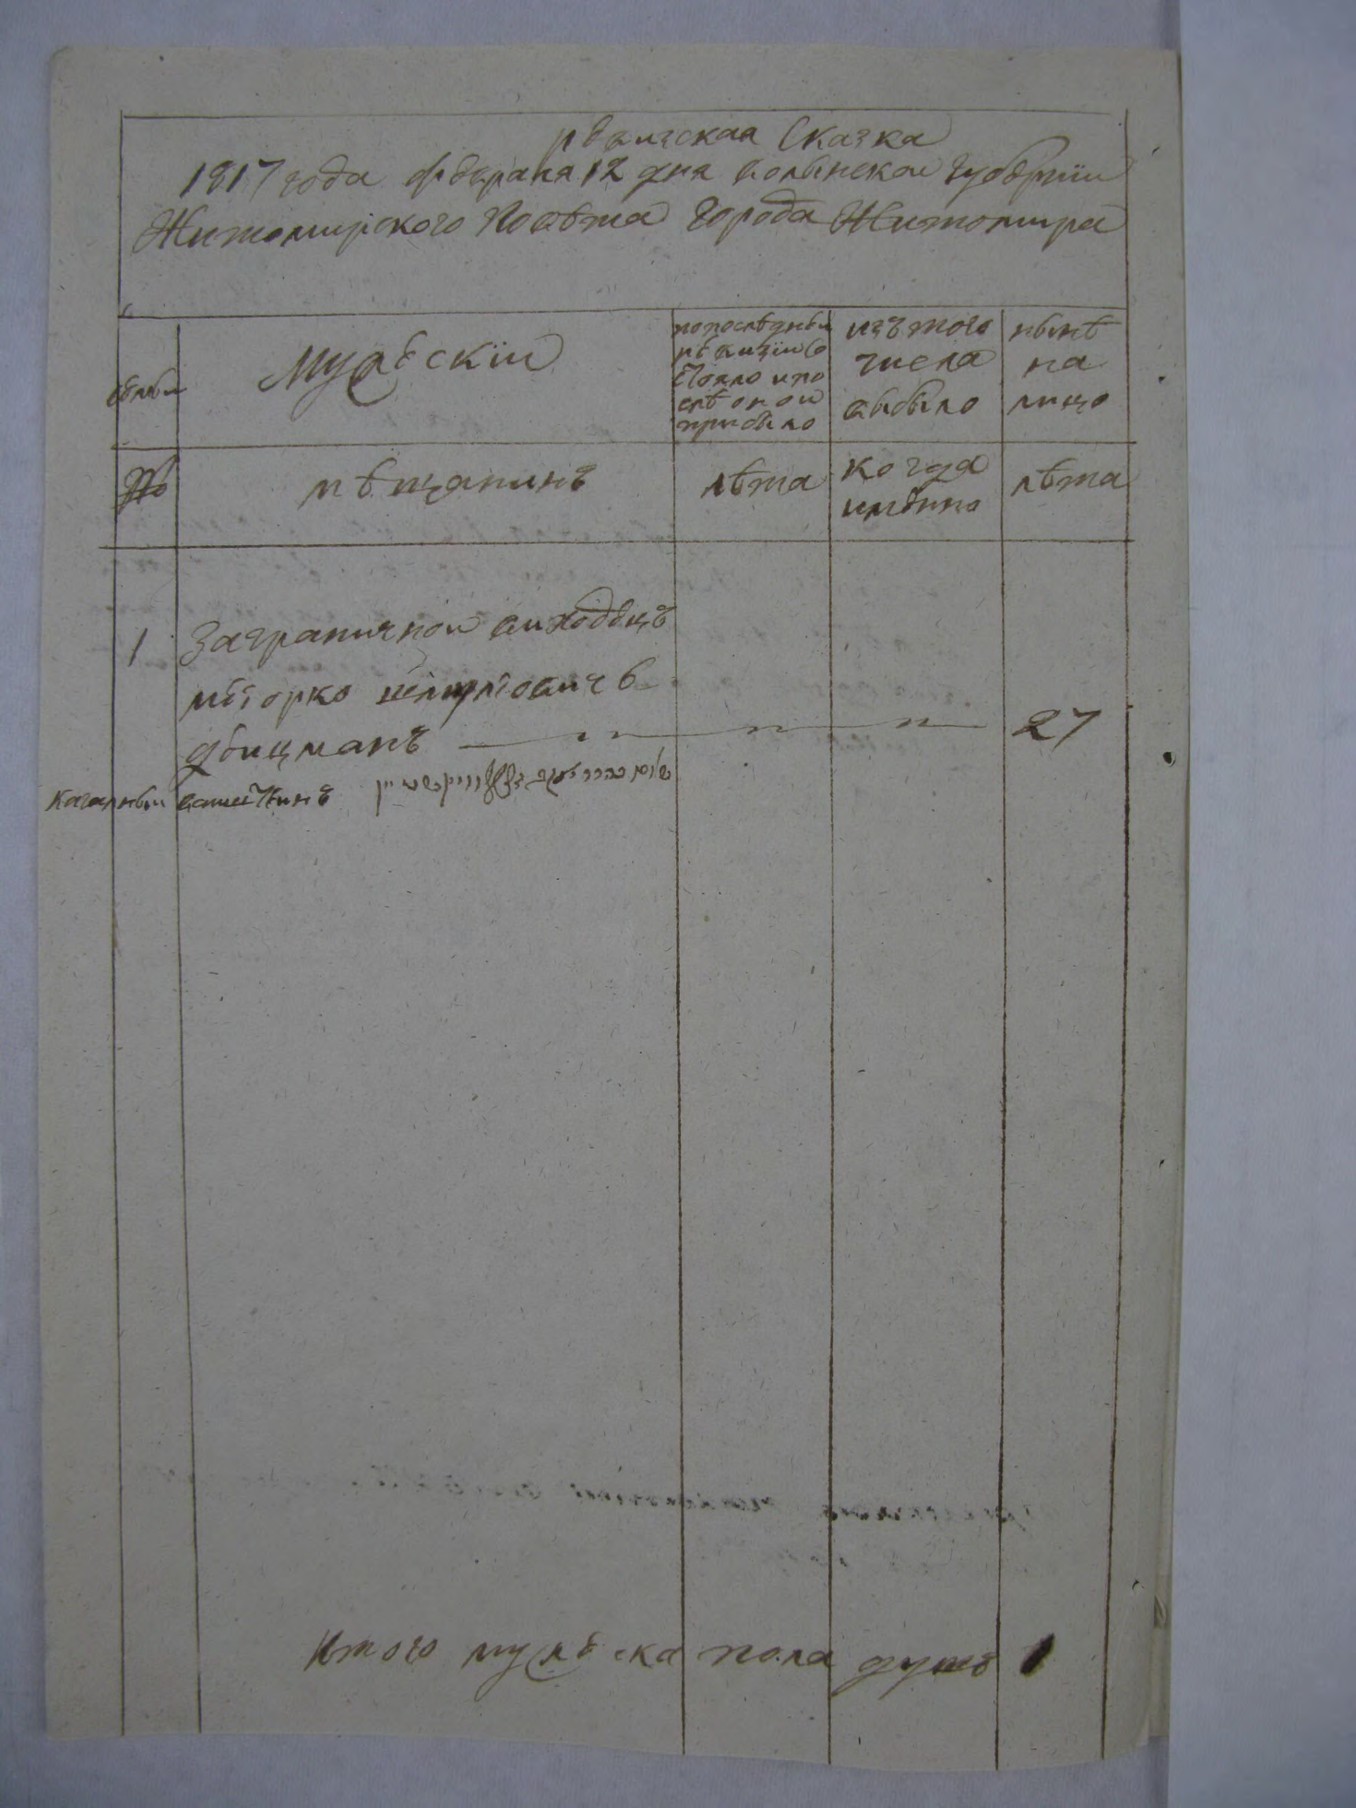 ревизская Сказка
1817 года февраля 12 дня волынской губернiи
Житомирского Повѣта Города Житомира
семьи
Мужескiй
попослѣдней
ревизiи со
стояло и по
слѣ оной
прибыло
изъ того
числа
выбыло
нынѣ
на
лицо
№
мѣщанинъ
лѣта
когда
имянно
лѣта
1
Заграничной выходецъ
27
кагальный
Итого мужеска пола душъ 1